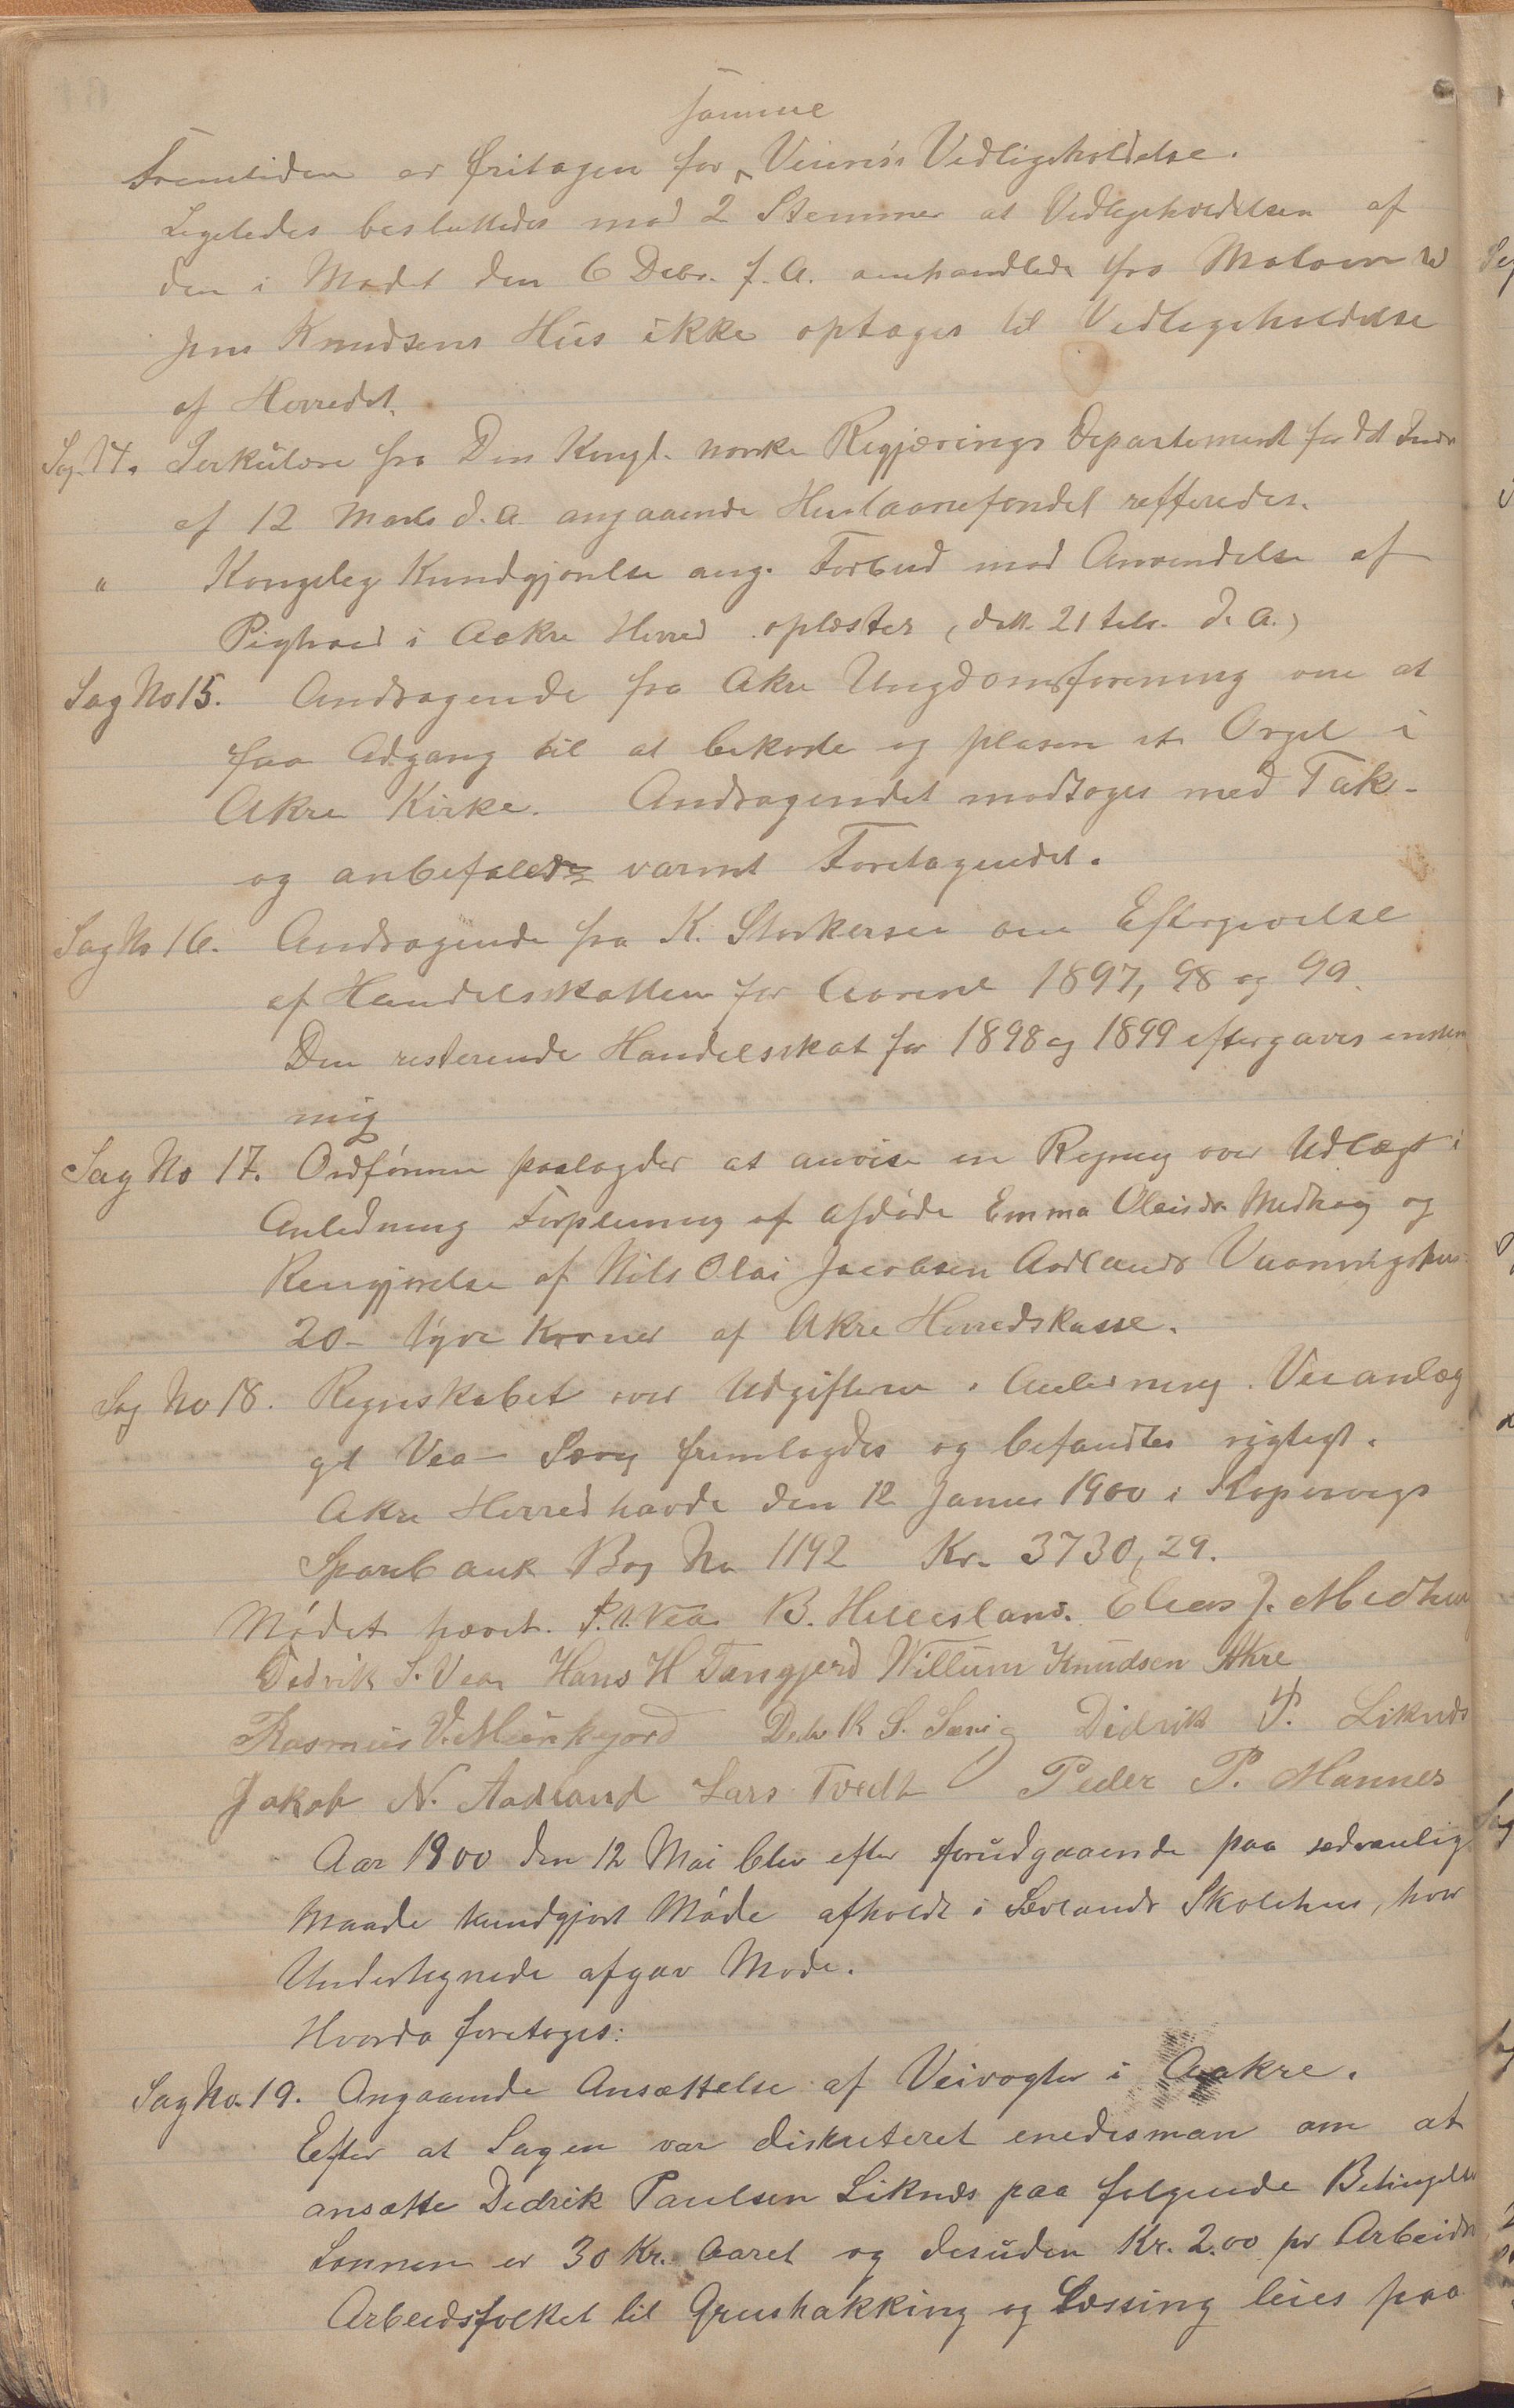 Fremtiden er fritagen for samme Veien's Vedligeholdelse.
Ligeledes besluttedes mod 2 Stemmer at Vedligeholdelsen af
den i Mødet den 6 Debr. f. A. omhandlede fra
Jens Knudsens Hus ikke optages til Vedligeholdelse
af Herredet.
Sag 14. Serkulære fra Den Kongl. norske Regjærings Departement for det Indre
af 12 Marts d. A. angaaende Huslaanefondet refferedes.
" Kongeleg Kundgjørelse ang. Forbud mod Anvendelse af
Pigtraad i Aakre Herred oplæstes (dat. 21 febr. d. A.)
Sag No 15. Andragende fra Akre Ungdomsforening om at
faa Adgang til at bekoste og plasere et Orgel i
Akre Kirke. Andragendet modtoges med Tak -
og anbefaledes varmt Foretagendet.
Sag No 16. Andragende fra K. Storkersen om Eftergivelse
af Handelsskatten for Aarene 1897, 98 og 99.
Den resterende Handelsskat for 1898 og 1899 eftergaves enstem
mig
Sag No 17. Ordføreren paalagdes at anvise en Regning over Udlægt i
Anledning Forpleining af Afdøde Emma Olaisdr. Medhøg og
Rengjørelse af Nils Olai Jacobsen Aadlands Vaaningshus
20 - tyve Kroner af Akre Herredskasse.
Sag No 18. Regnskabet over Udgifterne i Anledning Veianlæg
get Vea - Sævig fremlagdes og befandtes rigtigt.
Akre Herred havde den 12 Januar 1900 i Kopervigs
Sparebank Bog No 1192 Kr. 3730,29.
Mødet hævet. P. V. Vea B. Hillesland. Elias J. Medhug
Dedrik S. Vea Hans H Tangjerd Willum Knudsen Akre
Rasmus V. Munkejord Dedrik S. Sævig Didrik P. Liknes
Jakob N. Aadland Lars Tvedt Peder P. Mannes
Aar 1900 den 12 Mai blev efter forudgaaende paa sedvanlig
Maade kundgjort Møde afholdt i Sævlands Skolehus, hvor
Undertegnede afgav Møde.
Hvorda foretoges:
Sag No. 19. Angaaende Ansættelse af Veivogter i Aakre.
Efter at Sagen var diskuteret enedes man om at
ansætte Dedrik Paulsen Liknes paa følgende Betingelser
Lønnen er 30 Kr. Aaret og desuden Kr. 2.00 pr Arbeidsd
Arbeidsfolket til Grushakking og Læssing leies paa